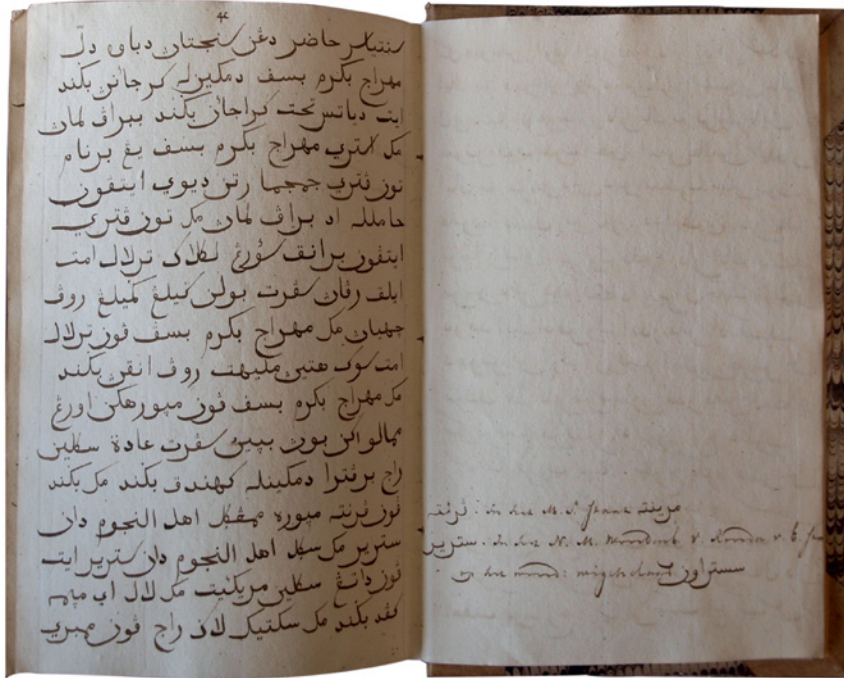 ٤
سنتياس حاضر دغن سنجتان دباوه
مهراج بكرم بسف دمكينله كرجائن بكند
ايت دياتس تخت كراجان بكند ببراڤ لمان
مك استري مهراج بكرم بسف يڠ برنام
تون ڤتري جمجما رتن ديوي ايتڤون
حامله اد براڤ لمان مك تون ڤتري
ايتڤون برانق سؤرڠ لكلاك ترلال امت
ايلق رڤان سڤرت بولن گيلڠ گميلڠ روڤ
جهيان مك مهراج بكرم بسف ڤون ترلال
امت سوك هتين مليهت روڤ انقن بكند
مك مهراج بكرم بسف ڤون مپورهكن اورڠ
ممالو اكن سڤرت عادة سكلين
راج برڤترا دمكينله كهندق بكند مك بكند
ڤون ترنته مپوره ممڠگل اهل النجوم دان
سترير مك سكل اهل النجوم دان سترير ايت
ڤون داتڠ سكلين مريكئيت مك لال اي مپمبه
كڤد بكند مك سكتيك لان راج ڤون ممبري
ترنته : In het M. S. staat مرينته
سترير . In het N. M. Woordenb. v.
het woord: سستراون